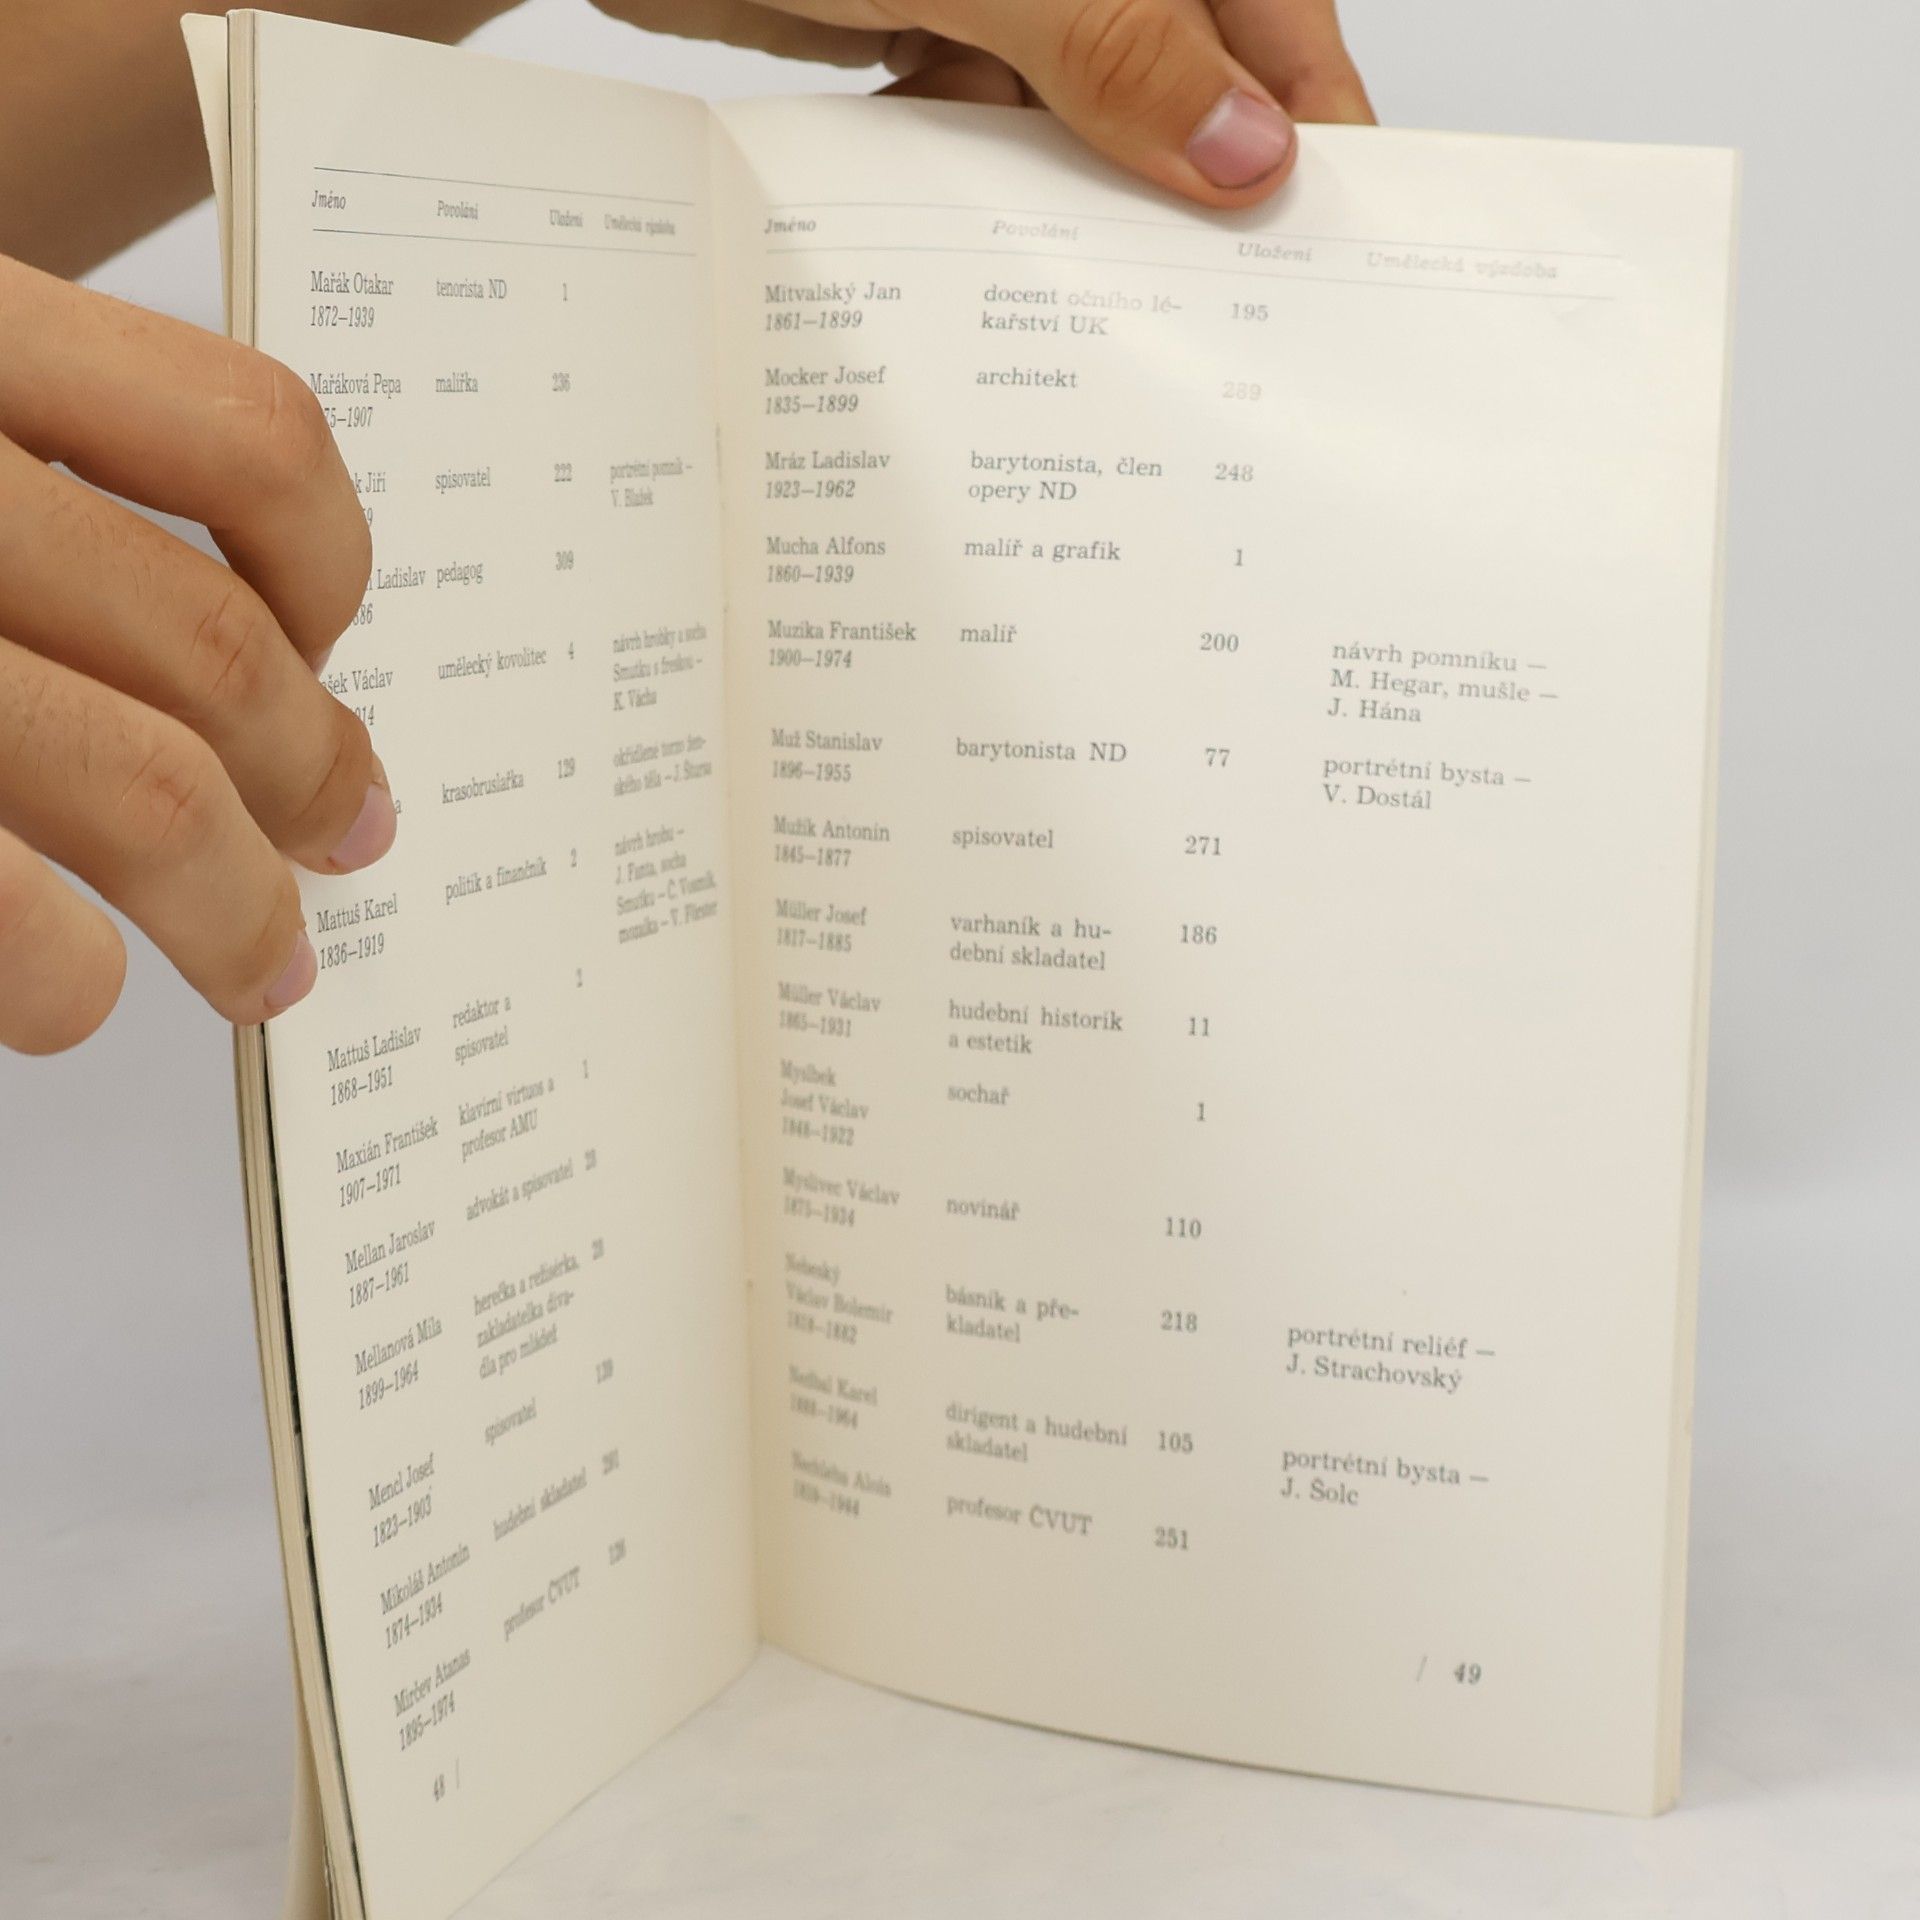 Jméno Povolání Uložení Umělecká výzdoba
Mařák Otakar tenorista ND 1
1872–1939
Mařáková Pepa malířka 236
75–1907
k Jiří spisovatel 222 portrétní pomník –
V. Blažek
Ladislav pedagog 309
886
Václav umělecký kovolitec 4 návrh hrobky a socha
914 Smutku s freskou –
K. Vácha
krasobruslařka 129 okřídlené torzo žen-
ského těla – J. Štursa
Mattuš Karel politik a finančník 2 návrh hrobu –
1836–1919 J. Fanta, socha
Smutku – Č. Vosmík,
mozaika – V. Förster
Mattuš Ladislav redaktor a 2
1868–1951 spisovatel
Maxián František klavírní virtuos a 1
1907–1971 profesor AMU
Mellan Jaroslav advokát a spisovatel
1887–1961
Mellanová Míla herečka a režisérka,
1899–1964 zakladatelka diva-
dla pro mládež
Mencl Josef spisovatel
1823–1903
Mikoláš Antonín hudební skladatel
1874–1934
Mirčev Atanas profesor ČVUT
1895–1974
48 /
Jméno Povolání Uložení Umělecká výzdoba
Mitvalský Jan docent očního lé- 195
1861–1899 kařství UK
Mocker Josef architekt 289
1835–1899
Mráz Ladislav barytonista, člen 248
1923–1962 opery ND
Mucha Alfons malíř a grafik 1
1860–1939
Muzika František malíř 200 návrh pomníku —
1900–1974 M. Hegar, mušle —
J. Hána
Muž Stanislav barytonista ND 77 portrétní bysta —
1896–1955 V. Dostál
Mužík Antonín spisovatel 271
1845–1877
Müller Josef varhaník a hu- 186
1817–1885 dební skladatel
Müller Václav hudební historik 11
1865–1931 a estetik
Myslbek sochař 1
Josef Václav
1848–1922
Myslivec Václav novinář 110
1875–1934
Nebeský básník a pře- 218 portrétní reliéf —
Václav Bolemír kladatel J. Strachovský
1818–1882
Nedbal Karel dirigent a hudební 105 portrétní bysta —
1888–1964 skladatel J. Šolc
profesor ČVUT 251
/ 49